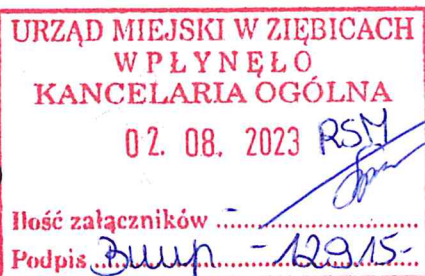 URZĄD MIEJSKI W ZIĘBICACH
WPŁYNĘŁO
KANCELARIA OGÓLNA
02. 08. 2023 RSM
Ilość załączników - ................
Podpis ................ - 12915-